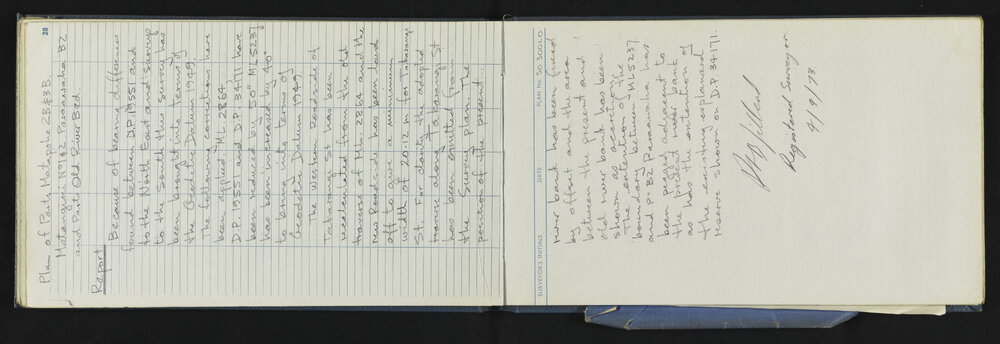 28
Plan of Parts Matapihe 2B & 3B
Matangiti Nº 1 & 2 Parawaka B2
and Parts Old River Bed
Report
Because of bearing differences
found between D.P. 19551 and
to the North East and surveys
to the South this survey has
been brought into terms of
the Geodetic Datum 1949.
The following corrections have
been applied, ML 2864,
D.P. 19551 and D.P. 34171 have
been reduced by 50" ML 5237
has been increased by 40"
to bring into terms of
Geodetic Datum 1949
The Western Roadside of
Takarangi St has been
recalculated from the old
traverse of ML 2864 and the
new Roadside has been laid
off to give a minimum
width of 20.12 m for Takarangi
St. For clarity the adopted
traverse along Takarangi St
has been omitted from
the Survey Plan. The
position of the present
SURVEYOR'S INITIALS
DATE
PLAN No. SO 30020
river bank has been fixed
by offset and the area
between the present and
old river bank has been
shown as accretion.
The extention of the
boundary between ML 5237
and Pt B2 Parawaka has
been pegged adjacent to
the present river bank
as has the extention of
the existing esplanade
Reserve shown on D.P. 34171.
Registered Surveyor
9/9/73